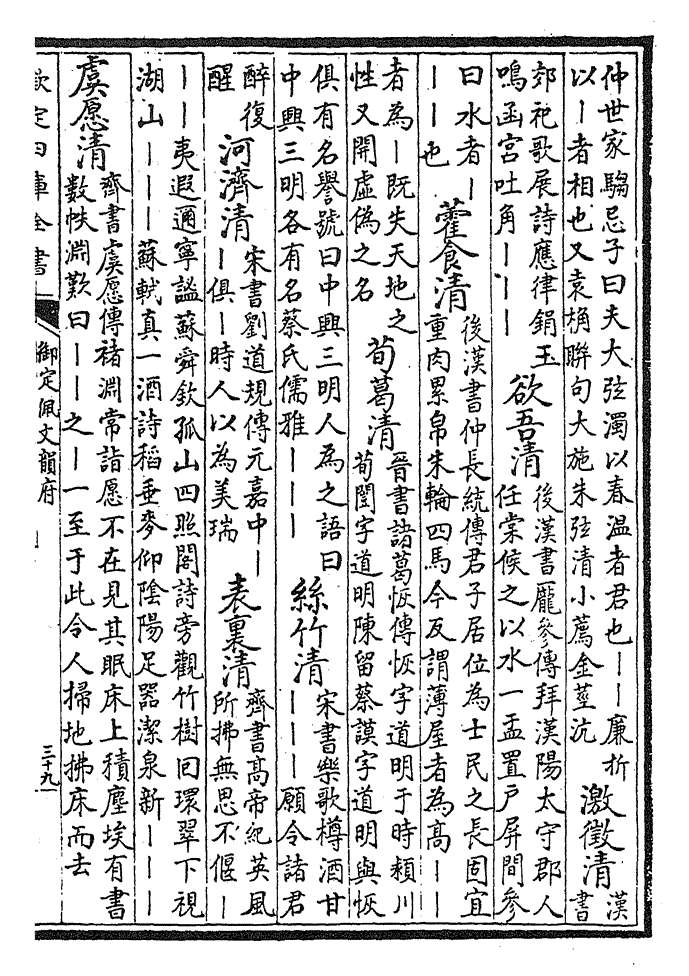 仲世家騶忌子曰夫大弦濁以春温者君也丨丨廉折
以丨者相也又袁桷聯句大施朱弦清小薦金莖沆
激徵清
漢
書
郊祀歌展詩應律鋗玉
鳴函宫吐角丨丨丨
欲吾清
後漢書龐參傳拜漢陽太守郡人
任棠候之以水一盂置户屏間參
曰水者丨
丨丨也
藿食清
後漢書仲長統傳君子居位為士民之長固宜
重肉累帛朱輪四馬今反謂薄屋者為高丨丨
者為丨既失天地之
性又開虚偽之名
荀葛清
晉書諸葛恢傳恢字道明于時潁川
荀闓字道明陳留蔡謨字道明與恢
俱有名譽號曰中興三明人為之語曰
中興三明各有名蔡氏儒雅丨丨丨
絲竹清
宋書樂歌樽酒甘
丨丨丨願令諸君
醉復
醒
河濟清
宋書劉道規傳元嘉中丨
丨俱丨時人以為美瑞
表裏清
齊書高帝紀英風
所拂無思不偃丨
丨丨夷遐邇寧謐蘇舜欽孤山四照閣詩旁觀竹樹回環翠下視
湖山丨丨丨蘇軾真一酒詩稻垂麥仰陰陽足器潔泉新丨丨丨
虞愿清
齊書虞愿傳褚淵常詣愿不在見其眠床上積塵埃有書
數帙淵歎曰丨丨之丨一至于此令人掃地拂床而去
欽定四庫全書
御定佩文韻府
三十九